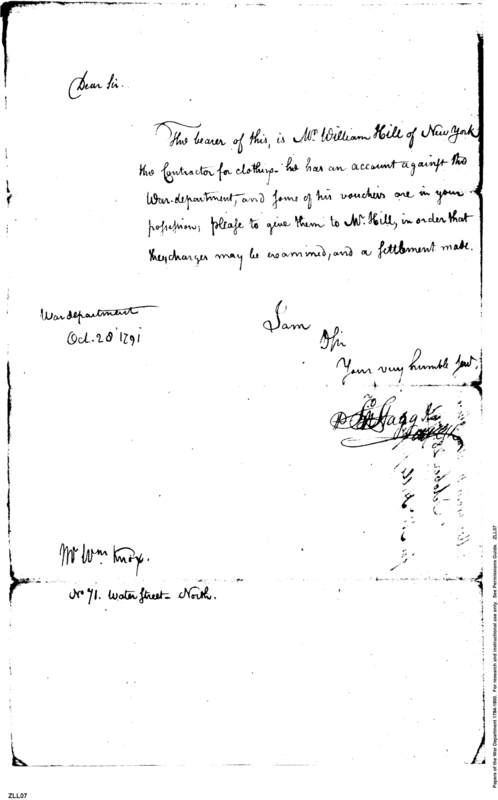 Dear Sir.
The bearer of this, is Mr. William Hill of New York
the Contractor for clothing- he has an account against the
War-department, and some of his vouchers are in your
possession; please to give them to Mr. Hill, in order that
the charges may be examined, and a settlement made.
War department
Oct. 28 1791
I am
D Sir
Your very humble serv.
Jno Stagg Jr
Mr. Wm. Knox.
No 71. Water Street- North.
Papers of the War Department 1784-1800. For research and instructional use only. See Permissions Guide. ZLL07
ZLL07